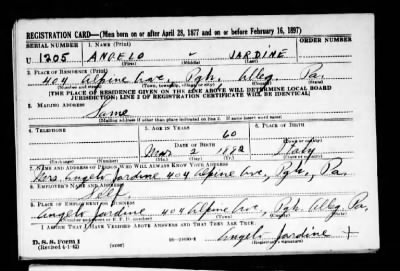 REGISTRATION CARD—(Men born on or after April 28, 1877 and on or before February 16, 1897)
SERIAL NUMBER 1. NAME (Print) ORDER NUMBER
U 1205 ANGELO - JARDINE
(First) (Middle) (Last)
2. PLACE OF RESIDENCE (Print)
404 Alpine Ave, Pgh, Alleg. Pa.
(Number and street) (Town, township, village, or city) (County) (State)
[THE PLACE OF RESIDENCE GIVEN ON THE LINE ABOVE WILL DETERMINE LOCAL BOARD
JURISDICTION; LINE 2 OF REGISTRATION CERTIFICATE WILL BE IDENTICAL]
3. MAILING ADDRESS
Same
(Mailing address if other than place indicated on line 2. If same insert word same)
4. TELEPHONE 5. AGE IN YEARS 6. PLACE OF BIRTH
60
DATE OF BIRTH (Town or county)
2 1882 Italy
(Exchange) (Number) (Mo.) (Day) (Yr.) (State or country)
7. NAME AND ADDRESS OF PERSON WHO WILL ALWAYS KNOW YOUR ADDRESS
Mrs. Angelo Jardine 404 Alpine Ave, Pgh, Pa.
8. EMPLOYER'S NAME AND ADDRESS
Self
9. PLACE OF EMPLOYMENT OR BUSINESS
Angelo Jardine 404 Alpine Ave, Pgh. Alleg. Pa.
(Number and street or R. F. D. number) (Town) (County) (State)
I AFFIRM THAT I HAVE VERIFIED ABOVE ANSWERS AND THAT THEY ARE TRUE.
D. S. S. Form 1
(Revised 4-1-42) (over) Angelo Jardine
(Registrant's signature)